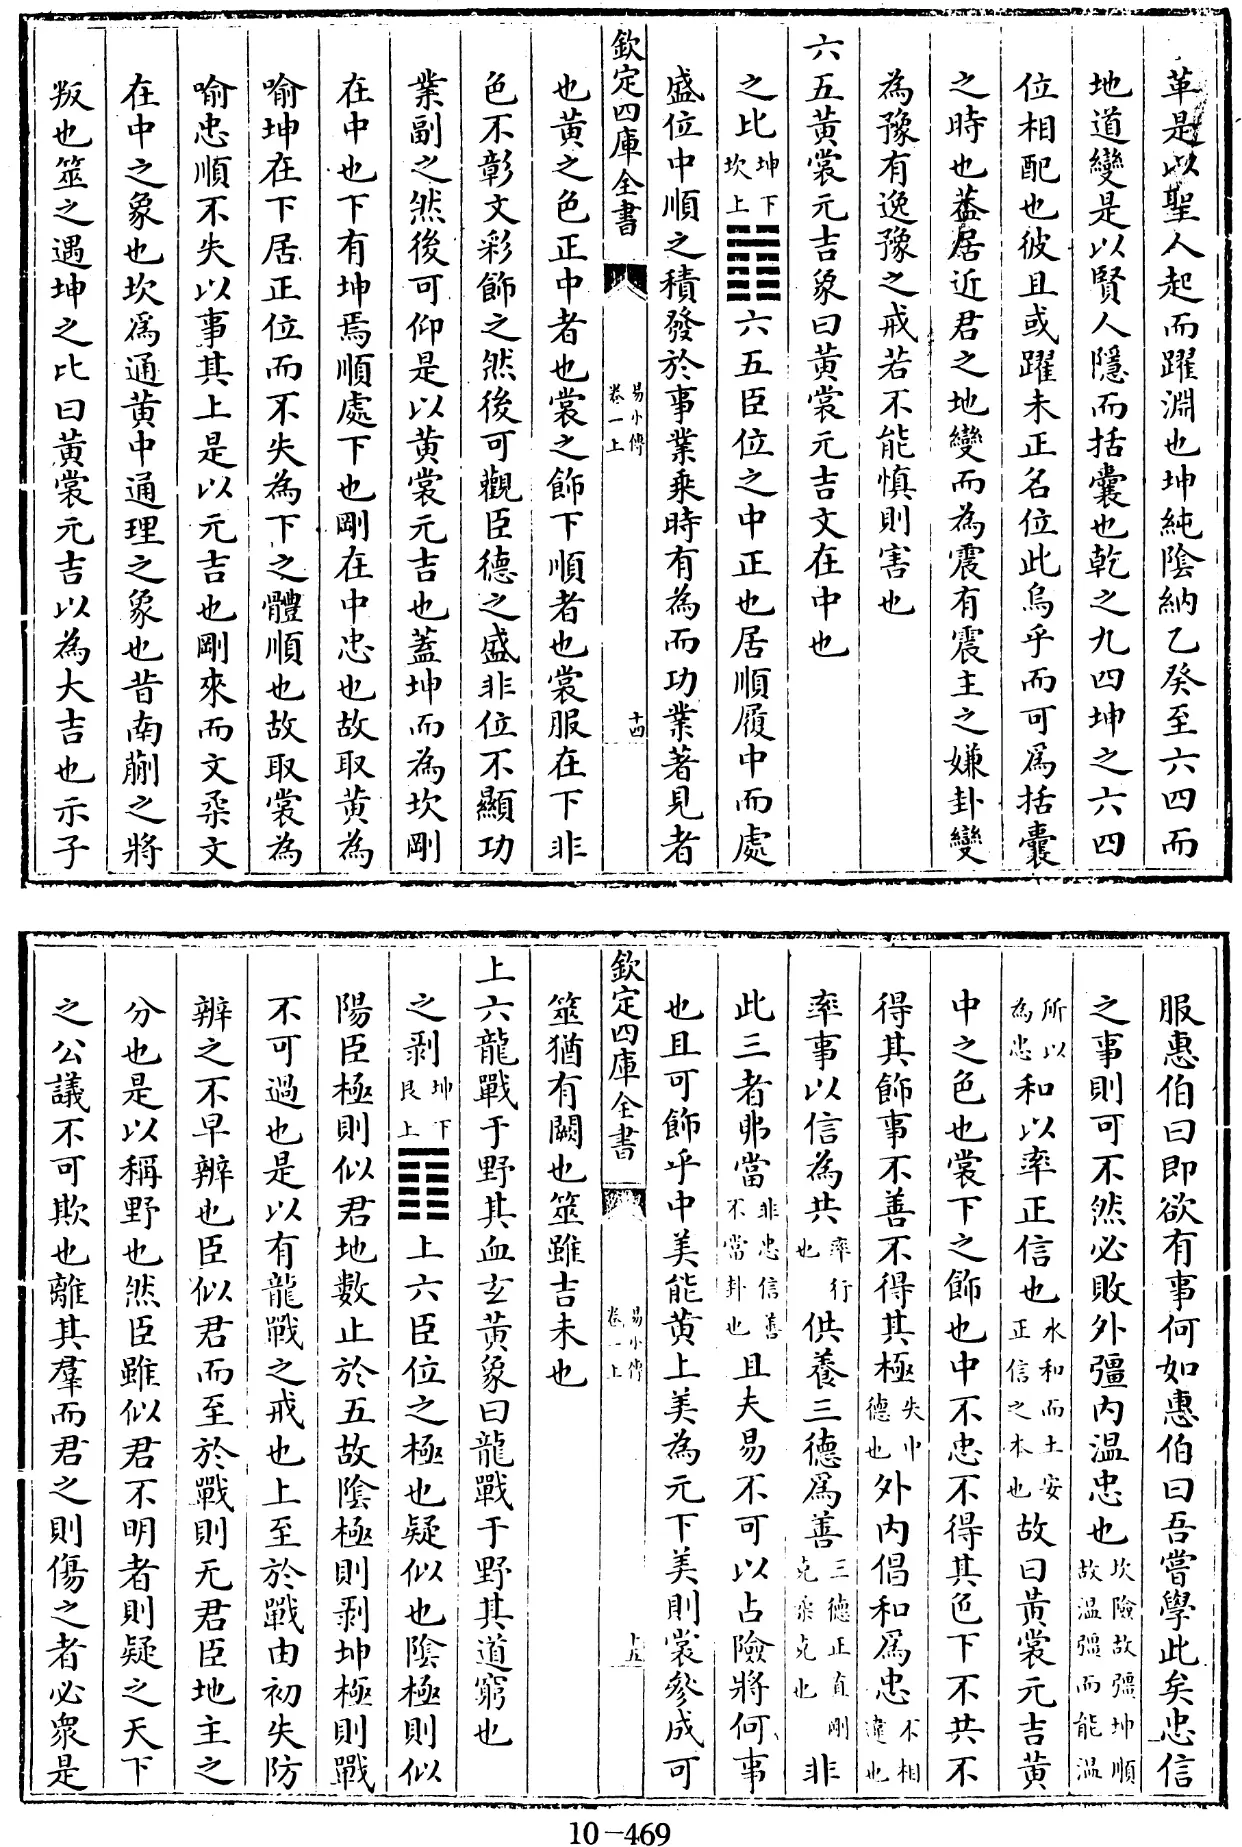 革是以聖人起而躍淵也坤純陰納乙癸至六四而
地道變是以賢人隱而括囊也乾之九四坤之六四
位相配也彼且或躍未正名位此烏乎而可爲括囊
之時也葢居近君之地變而為震有震主之嫌卦變
為豫有逸豫之戒若不能慎則害也
六五黄裳元吉象曰黄裳元吉文在中也
之比坤下坎上䷇六五臣位之中正也居順履中而處
盛位中順之積發於事業乘時有為而功業著見者
欽定四庫全書 易小傳卷一上 十四
也黄之色正中者也裳之飾下順者也裳服在下非
色不彰文彩飾之然後可觀臣德之盛非位不顯功
業副之然後可仰是以黄裳元吉也蓋坤而為坎剛
在中也下有坤焉順處下也剛在中忠也故取黄為
喻坤在下居正位而不失為下之體順也故取裳為
喻忠順不失以事其上是以元吉也剛來而文柔文
在中之象也坎爲通黄中通理之象也昔南蒯之將
叛也筮之遇坤之比曰黄裳元吉以為大吉也示子
服惠伯曰即欲有事何如惠伯曰吾嘗學此矣忠信
之事則可不然必敗外彊内温忠也坎險故彊坤順故温彊而能温
所以為忠和以率正信也水和而土安正信之本也故曰黄裳元吉黄
中之色也裳下之飾也中不忠不得其色下不共不
得其飾事不善不得其極失中德也外内倡和爲忠不相違也
率事以信為共率行也供養三德爲善三德正直剛克柔克也非
此三者弗當非忠信善不當卦也且夫易不可以占險將何事
也且可飾乎中美能黄上美為元下美則裳參成可
欽定四庫全書 易小傳卷一上 十五
筮猶有闕也筮雖吉未也
上六龍戰于野其血玄黄象曰龍戰于野其道窮也
之剥坤下艮上䷖上六臣位之極也疑似也陰極則似
陽臣極則似君地數止於五故陰極則剥坤極則戰
不可過也是以有龍戰之戒也上至於戰由初失防
辨之不早辨也臣似君而至於戰則无君臣地主之
分也是以稱野也然臣雖似君不明者則疑之天下
之公議不可欺也離其羣而君之則傷之者必衆是
10-469